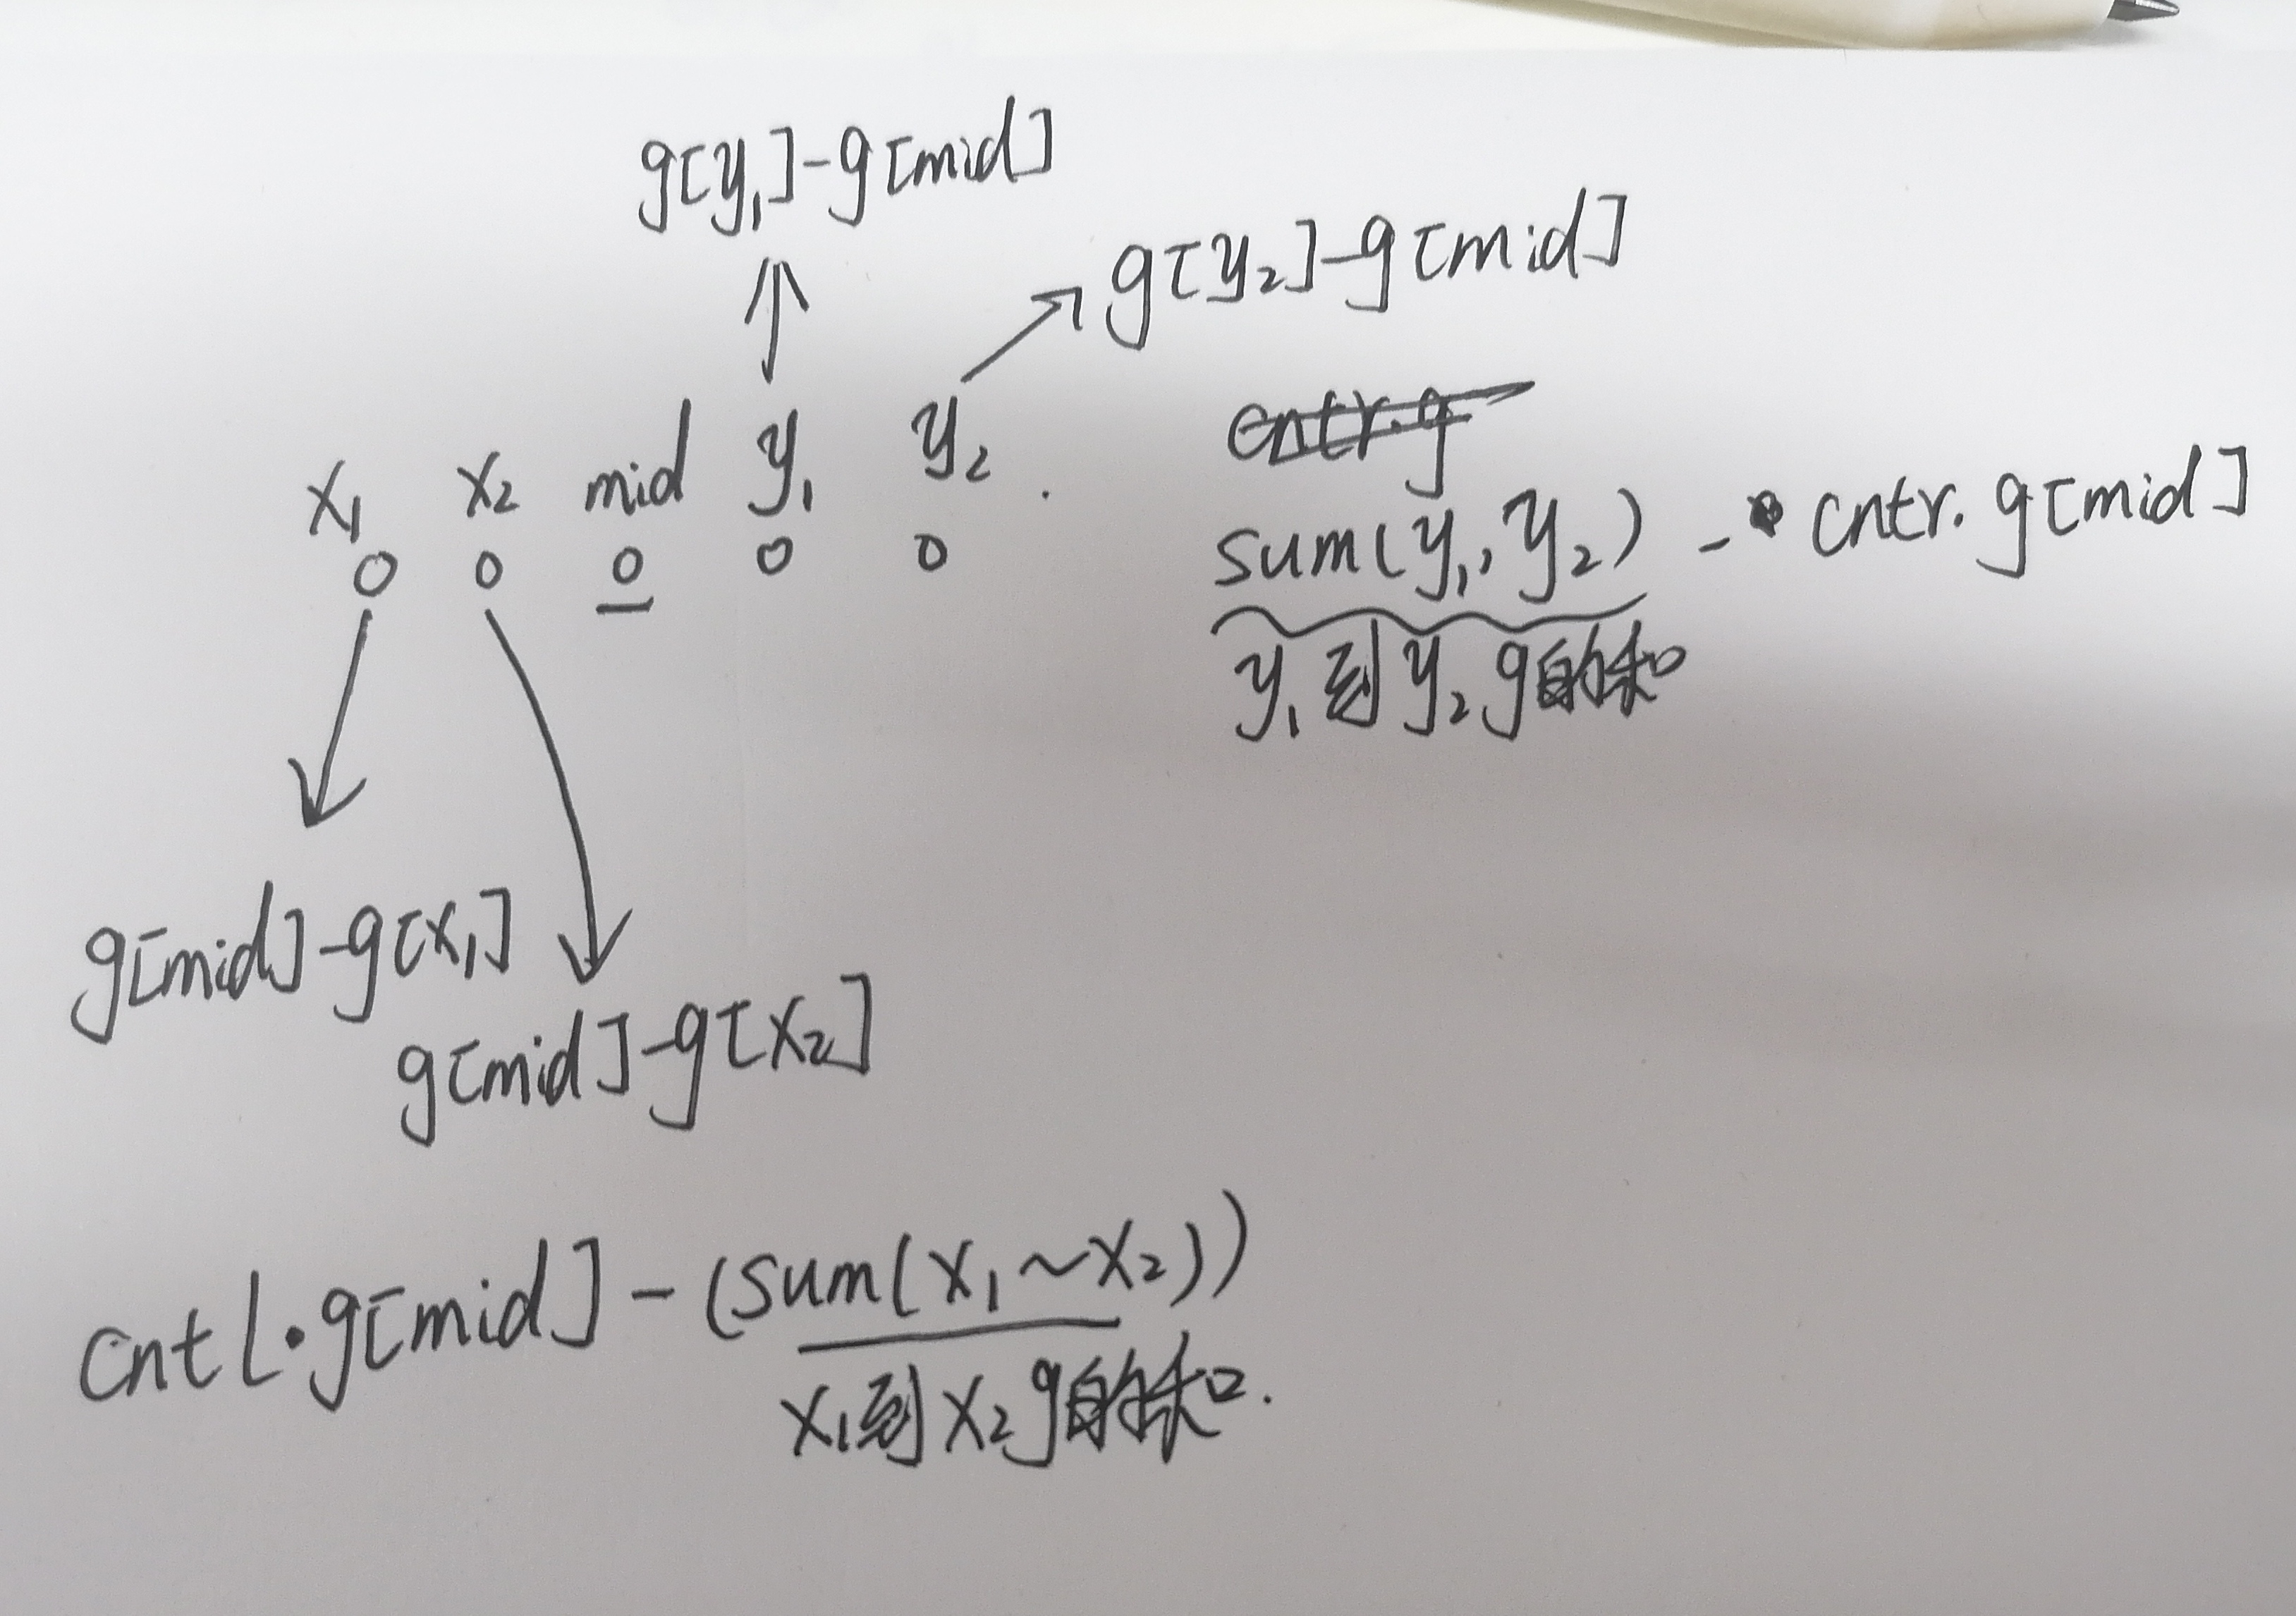 g[y₁]-g[mid]
g[y₂]-g[mid]
x₁ x₂ mid y₁ y₂ .
cntr.g
sum(y₁,y₂) - cntr.g[mid]
y₁到y₂g的和
g[mid]-g[x₁]
g[mid]-g[x₂]
cntl·g[mid]-(sum(x₁~x₂))
x₁到x₂g的和.